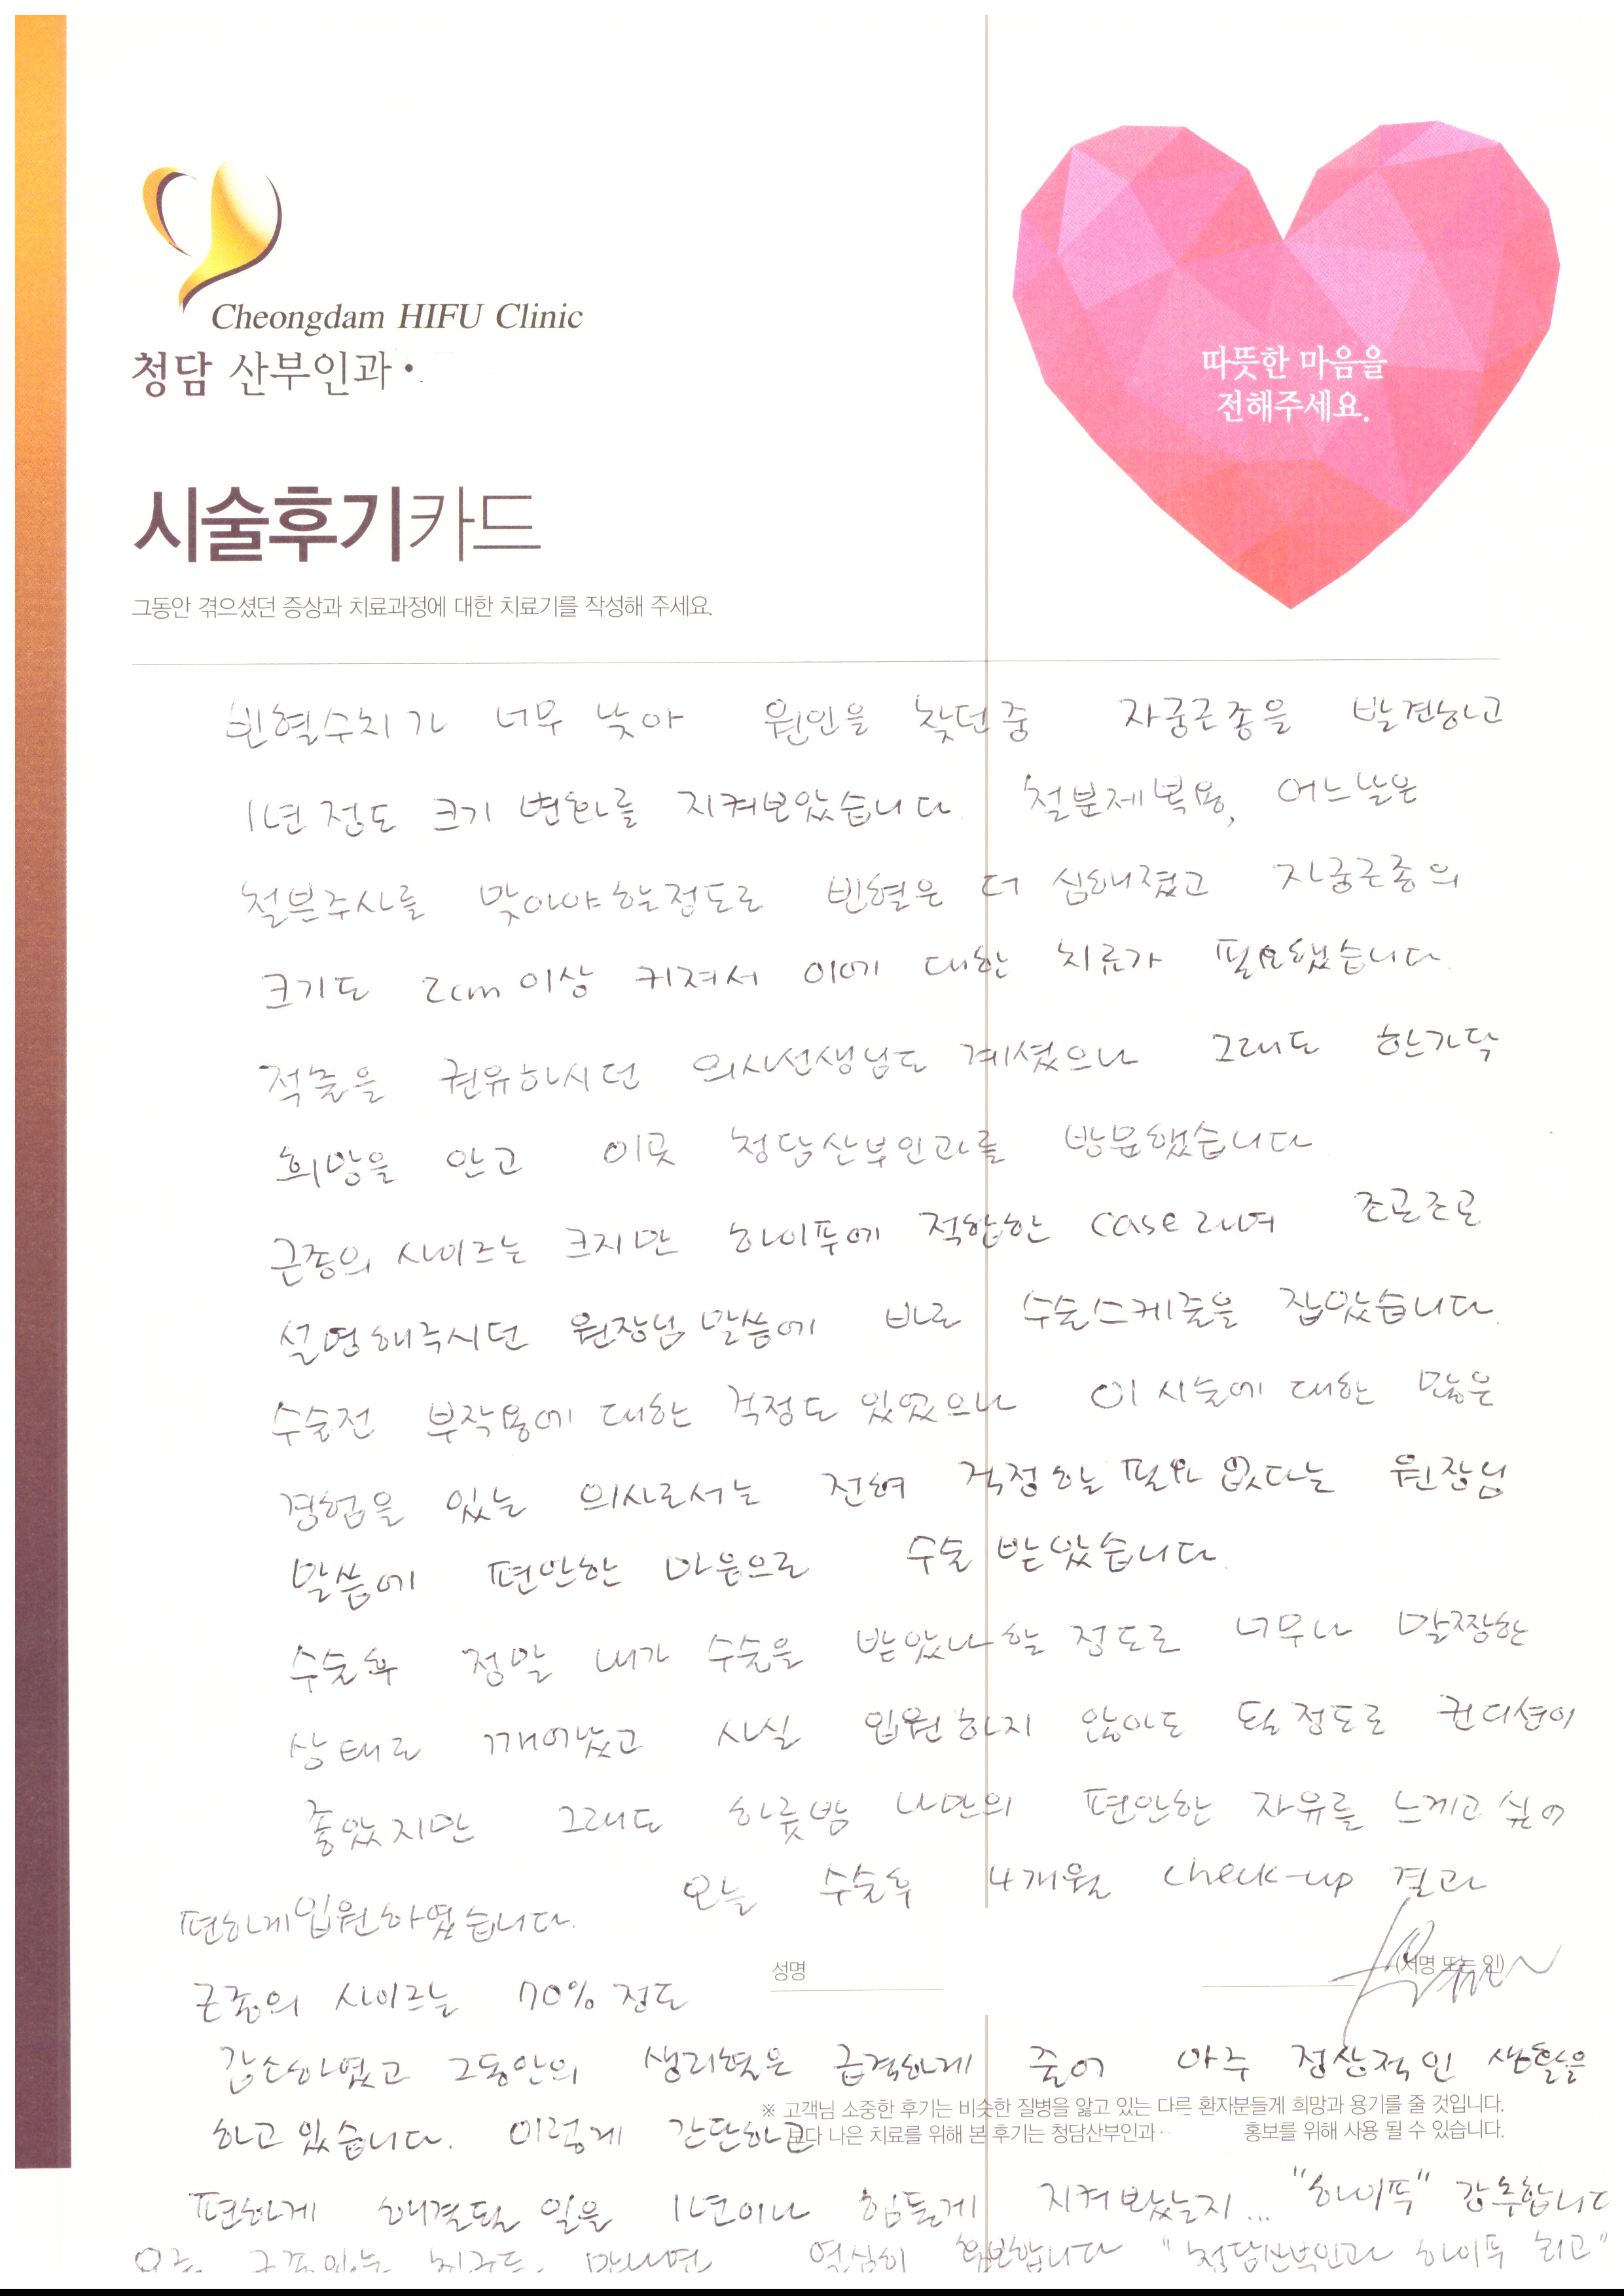 Cheongdam HIFU Clinic
청담 산부인과·
따뜻한 마음을
전해주세요.
시술후기카드
그동안 겪으셨던 증상과 치료과정에 대한 치료기를 작성해 주세요.
빈혈수치가 너무 낮아 원인을 찾던중 자궁근종을 발견하고
1년 정도 크기 변화를 지켜보았습니다 철분제복용, 어느날은
철분주사를 맞아야할정도로 빈혈은 더 심해졌고 자궁근종의
크기도 2cm 이상 커져서 이에 대한 치료가 필요했습니다.
적출을 권유하시던 의사선생님도 계셨으나 그래도 한가닥
희망을 안고 이곳 청담산부인과를 방문했습니다
근종의 사이즈는 크지만 하이푸에 적합한 case라며 조곤조곤
설명해주시던 원장님 말씀에 바로 수술스케줄을 잡았습니다.
수술전 부작용에 대한 걱정도 있었으나 이 시술에 대한 많은
경험을 있는 의사로서는 전혀 걱정할 필요 없다는 원장님
말씀에 편안한 마음으로 수술 받았습니다.
수술후 정말 내가 수술을 받았나 할 정도로 너무나 말짱한
상태로 깨어났고 사실 입원하지 않아도 될 정도로 컨디션이
좋았지만 그래도 하룻밤 나만의 편안한 자유를 느끼고 싶어
편하게 입원하였습니다. 오늘 수술후 4개월 check-up 결과
성명 (서명 또는 인)
근종의 사이즈는 70% 정도
감소하였고 그동안의 생리혈은 급격하게 줄어 아주 정상적인 생활을
※ 고객님 소중한 후기는 비슷한 질병을 앓고 있는 다른 환자분들게 희망과 용기를 줄 것입니다.
하고 있습니다. 이렇게 간단하고
보다 나은 치료를 위해 본 후기는 청담산부인과· 홍보를 위해 사용 될 수 있습니다.
편하게 해결될 일을 1년이나 힘들게 지켜봤는지... "하이푸" 강추합니다
요즘 근종있는 친구들 만나면 열심히 홍보합니다 "청담산부인과 하이푸 최고"